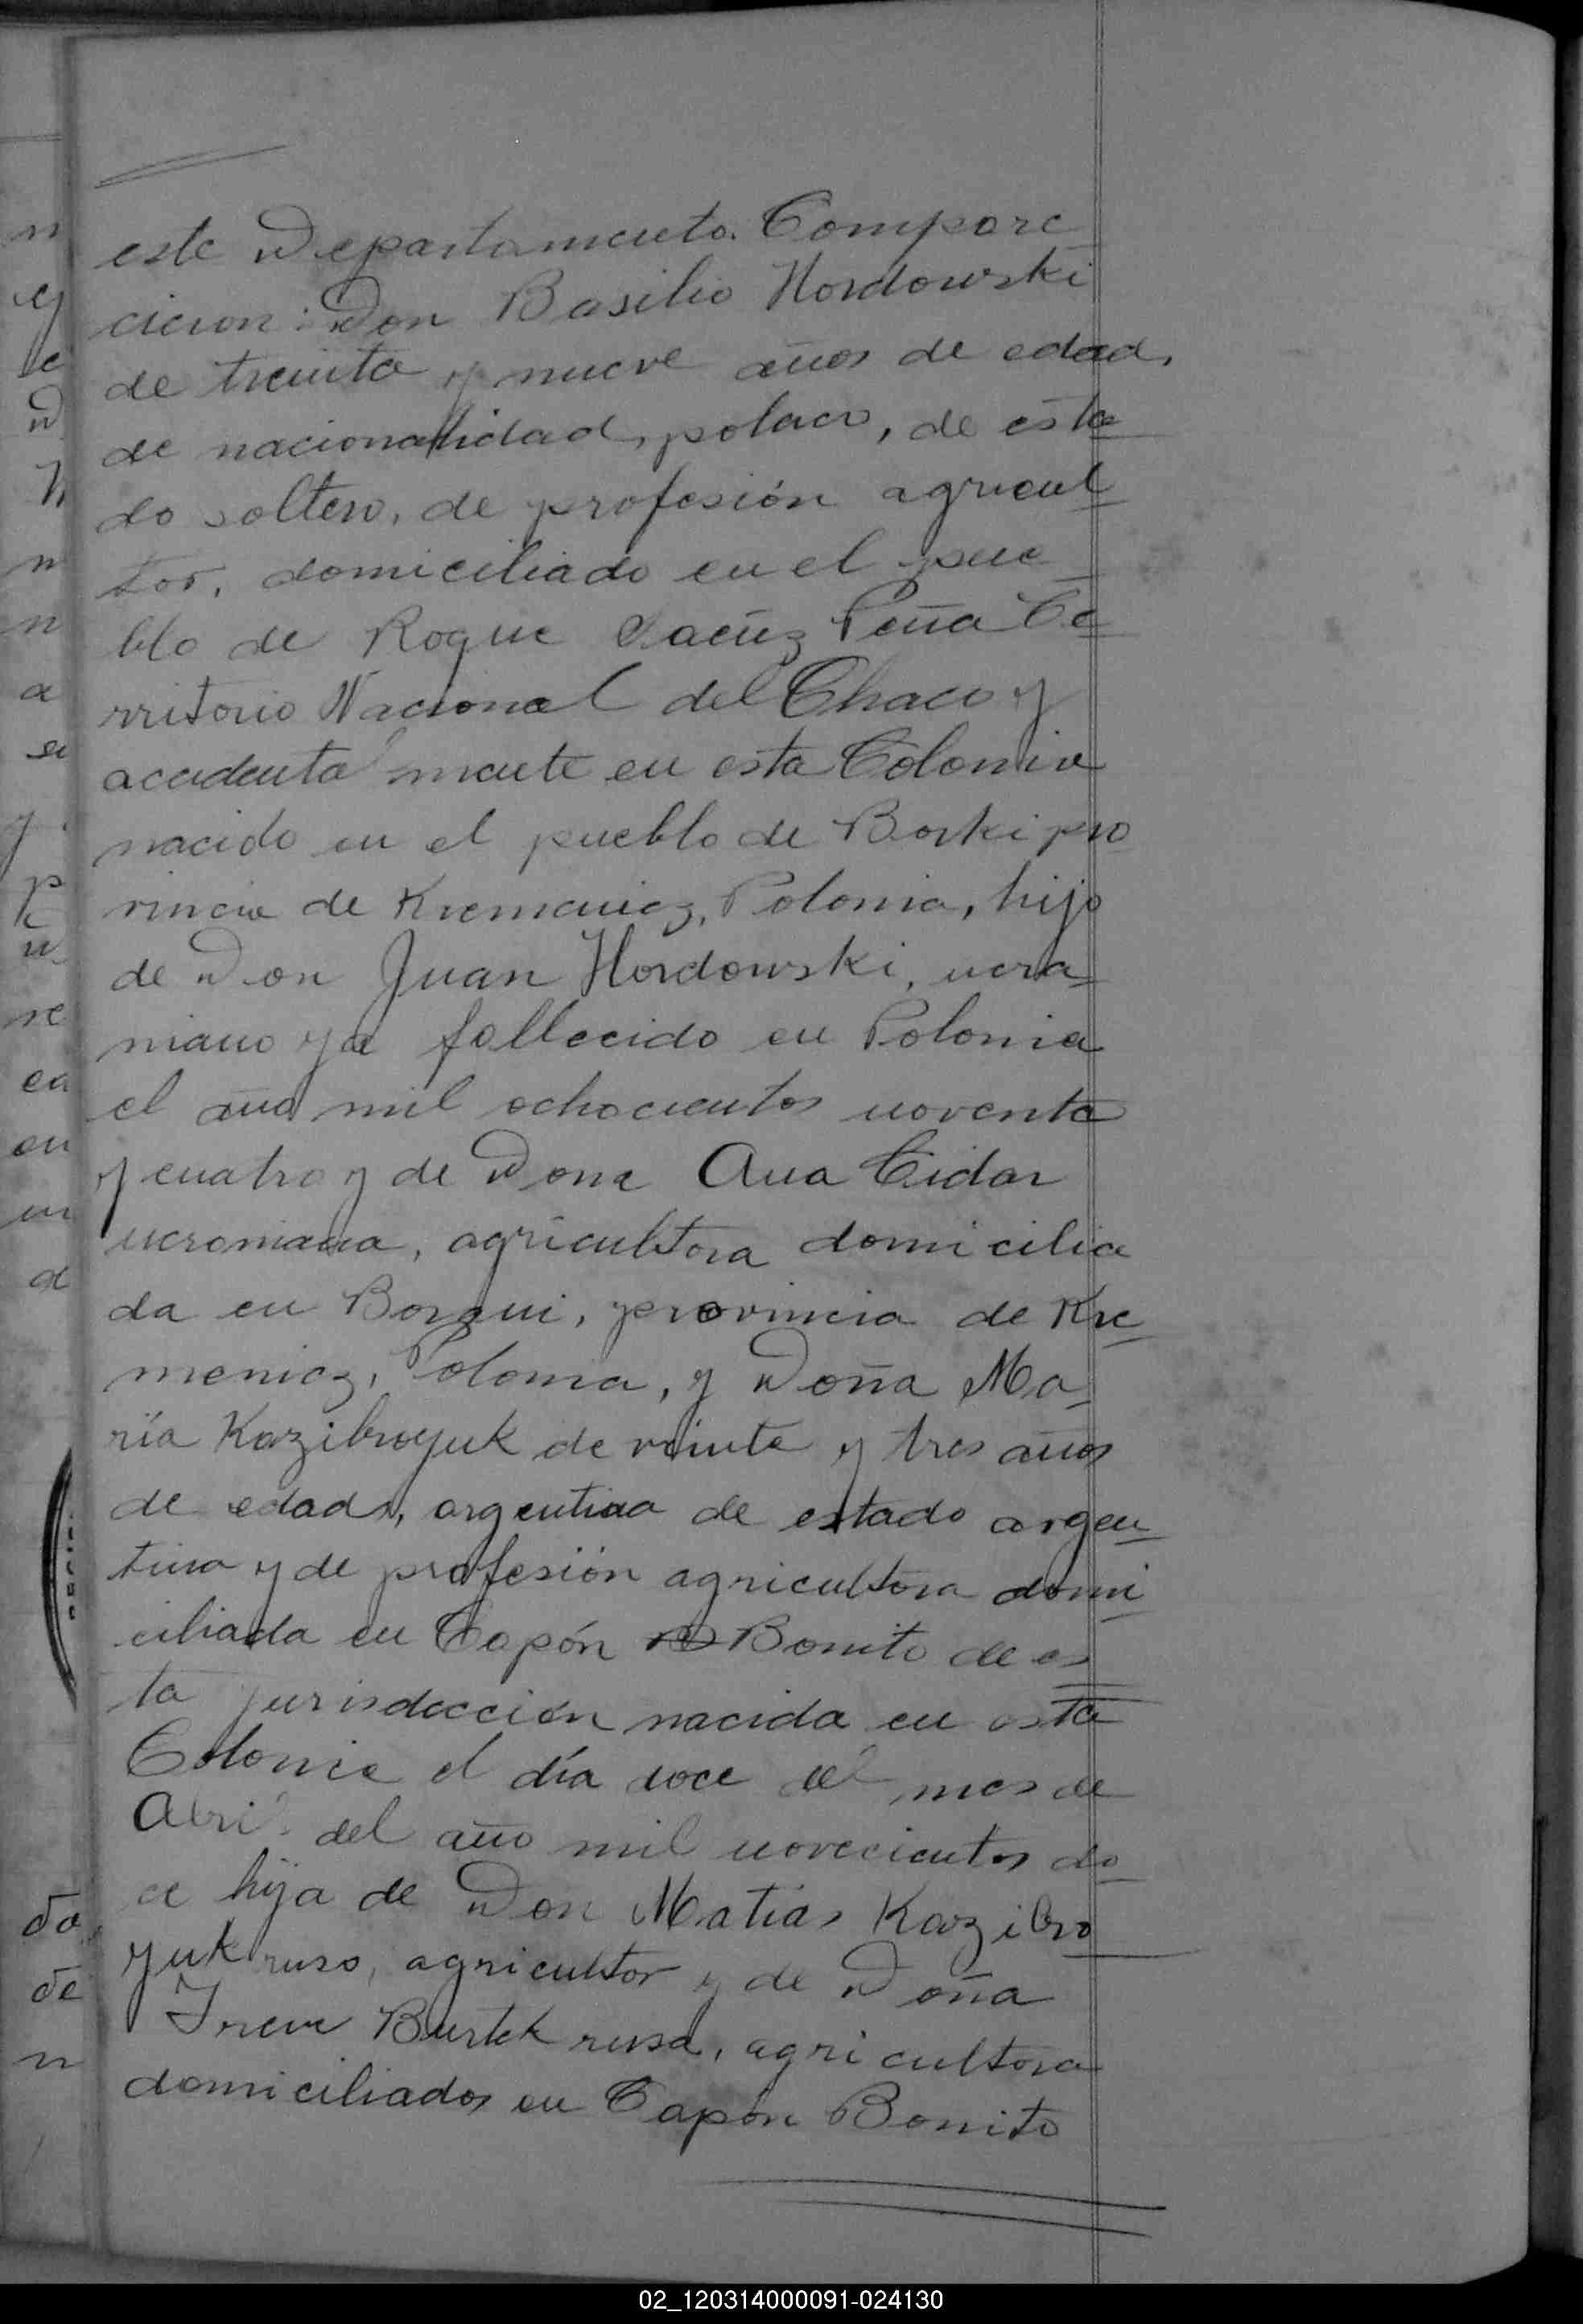 este Departamento. Compare
cieron: Don Basilio Hordowski
de treinta y nueve años de edad,
de nacionalidad, polaco, de esta
do soltero, de profesión agricul
tor, domiciliado en el pue
blo de Roque Saenz Peña Te
rritorio Nacional del Chaco y
accidentalmente en esta Colonia
nacido en el pueblo de Borki pro
vincia de Kremeniez, Polonia, hijo
de Don Juan Hordowski, ucra
niano ya fallecido en Polonia
el año mil ochocientos noventa
y cuatro y de Dona Ana Cidor
ucraniana, agricultora domicilia
da en Borqui, provincia de Kre
meniez, Polonia, y Doña Ma
ría Kazibroyuk de veinte y tres años
de edad, argentina de estado argen
tina y de profesión agricultora domi
ciliada en Capón Bonito de es
ta jurisdección nacida en esta
Colonia el día doce del mes de
Abril del año mil novecientos do
ce hija de Don Matías Kazibro
yuk ruso, agricultor y de Doña
Irene Burtek rusa, agricultora
domiciliados en Capón Bonito
da
de
n
02_120314000091-024130